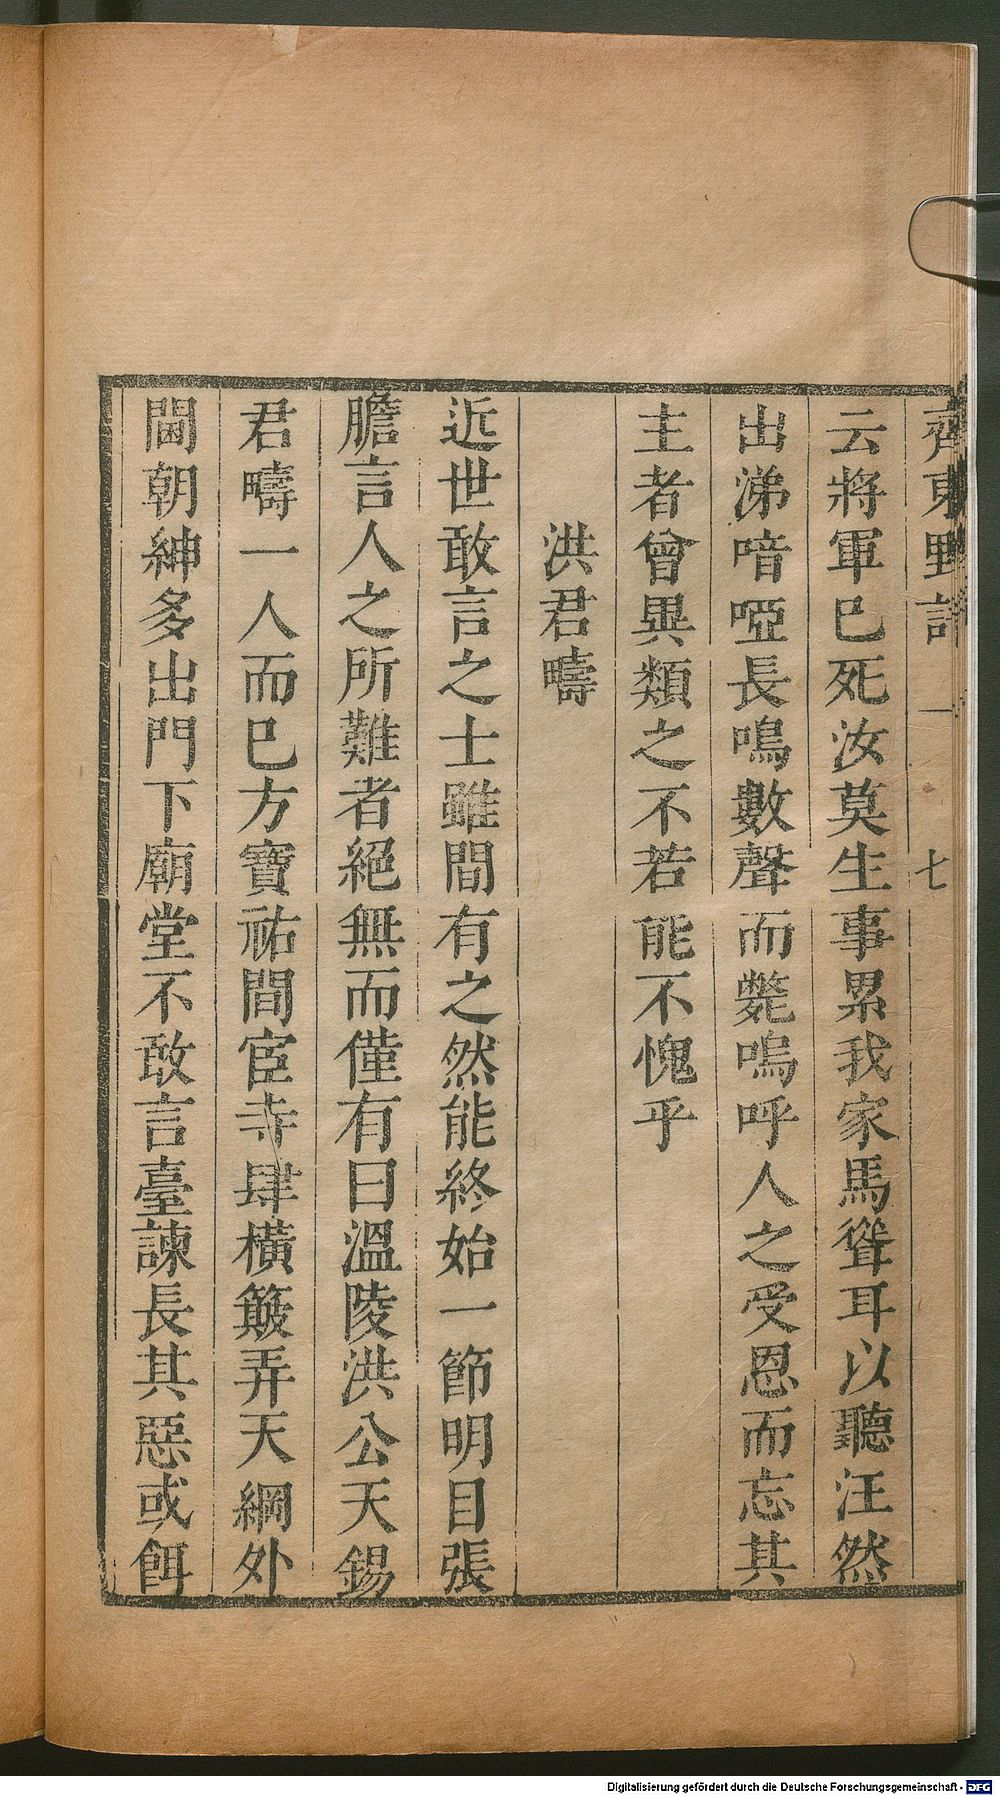 齊東野語　一　七
云將軍巳死汝莫生事累我家馬聳耳以聽汪然
出涕喑啞長鳴數聲而斃嗚呼人之受恩而忘其
主者曾異類之不若能不愧乎
洪君疇
近世敢言之士雖間有之然能終始一節明目張
膽言人之所難者絕無而僅有曰溫陵洪公天錫
君疇一人而巳方寶祐間宦寺肆橫簸弄天綱外
閫朝紳多出門下廟堂不敢言臺諫長其惡或餌
Digitalisierung gefördert durch die Deutsche Forschungsgemeinschaft - DFG